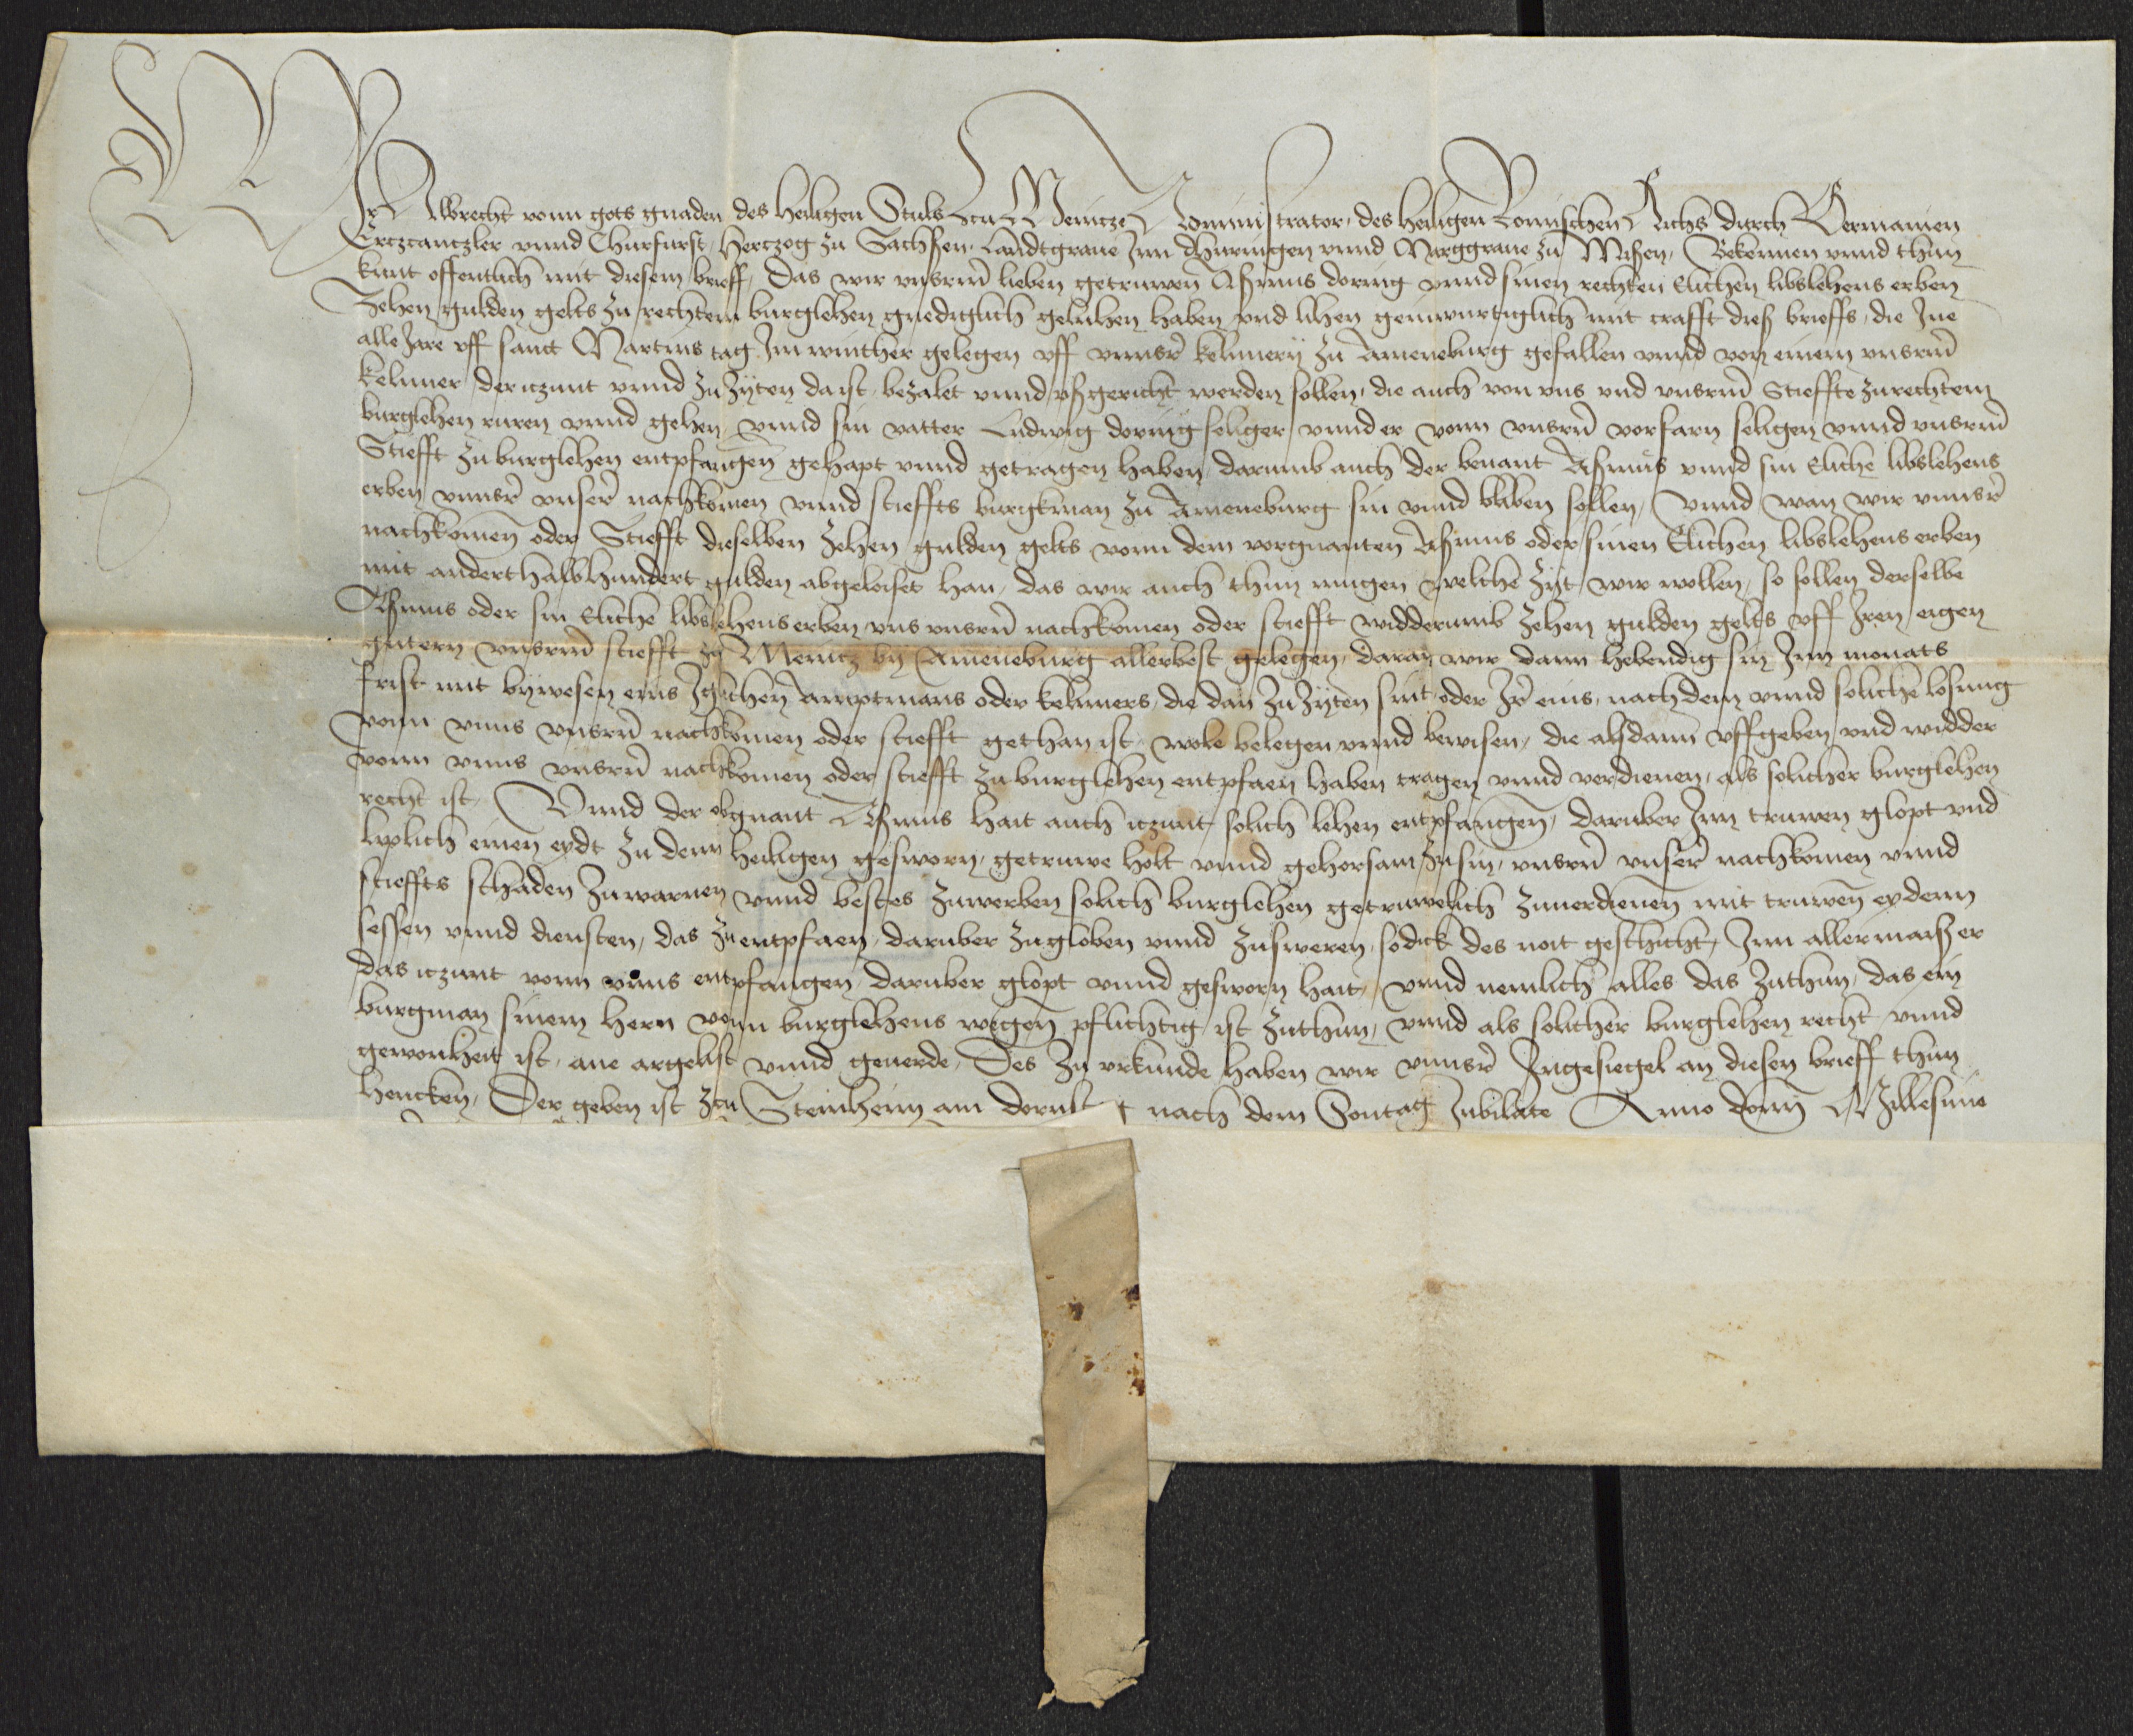 WIr Albrecht vonn gots gnaden des heiligen Stuls zcu Meintze Administrator, des heiligen Romischen Richs durch Germanien
Ertzcantzler vnnd Churfurst, Hertzog zu Sachssen, Landtgraue Inn Dhuringen vnnd Marggraue zu Missen, Bekennen vnnd thun
kunt offentlich mit diesem brieff, Das wir vnserm lieben getruwen Asmus doring vnnd sinen rechten Elichen libslehens erben
Zehen gulden gelts zu rechtem burglehen gnediglich geluhen haben vnd lihen geinwurtiglich mit crafft dieß brieffs, die Ine
alle Jare vff sanct Martins tag Im winther gelegen vff vnnser kelnnery zu Ameneburg gefallen vnnd von einem vnserm
kelnner der itzunt vnnd zu zyten da ist, bezalet vnnd vßgericht werden sollen, die auch von vns vnd vnserm Stieffte zu rechtem
burglehen ruren vnnd gehen, vnnd sin vatter Ludwig doring seliger vnnd er vonn vnsern vorfarn seligen vnnd vnserm
Stiefft zu burglehen entpfangen gehapt vnnd getragen haben, darumb auch der benant Asmus vnnd sin Eliche libslehens
erben vnnser vnser nachkomen vnnd stieffts burgkman zu Ameneburg sin vnnd bliben sollen, Vnnd wan wir vnnser
nachkomen oder Stiefft dieselben Zehen gulden gelts vonn dem vorgnanten Asmus oder sinen Elichen libslehens erben
mit anderthalbhundert gulden abgeloiset han, das wir auch thun mugen welche zyt wir wollen, so sollen derselbe
Asmus oder sin Eliche libslehens erben vns vnsern nachkomen oder stiefft widderumb zehen gulden gelts vff Iren eigen
gutern vnserm stiefft zu Meintz by Ameneburg allerbest gelegen, daran wir dann hebendig sin Inn monats
frist mit bywesen eins Iglichen Amptmans oder kelnners, die dan zu zyten sint oder Ir eins, nach dem vnnd soliche losung
vonn vnns vnsern nachkomen oder stiefft gethan ist, wole belegen vnnd bewisen, die alsdann vffgeben vnd widder
vonn vnns vnsern nachkomen oder stiefft zu burglehen entpfaen haben tragen vnnd verdienen, als solicher burglehen
recht ist, Vnnd der obgnant Asmus hait auch itzunt solich lehen entpfangen, daruber Inn truwen glopt vnd
liplich einen eydt zu denn heiligen gesworn, getruwe holt vnnd gehorsam zu sin, vnsern vnser nachkomen vnnd
stieffts schaden zuwarnen vnnd bestes zuwerben solich burglehen getruwelich zuuerdienen mit truwen eydenn
sessen vnnd diensten, das zu entpfaen, daruber zu globen vnnd zu sweren, so dick des noit geschicht, Inn allermaiß er
das itzunt vonn vnns entpfangen daruber glopt vnnd gesworn hait, vnnd nemlich alles das zuthun, das ein
burgman sinem hern vonn burglehens wegen pflichtig ist zuthun, vnnd als solicher burglehen recht vnnd
gewonheit ist, ane argelist vnnd geuerde, Des zu vrkunde haben wir vnnser Ingesiegel an diesen brieff thun
hencken, Der geben ist zcu Steinheim am dornst t nach dem Sontag Jubilate Anno domini Millesimo